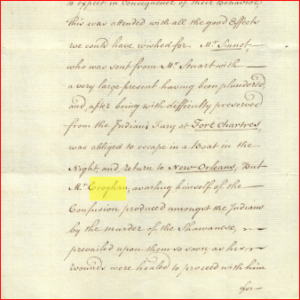 to expect in Consequence of their Behaviour,
this was attended with all the good Effects
we could have wished for. Mr. Sinnot
who was sent from Mr. Stuart with
a very large present having been plundered
and, after being with difficulty preserved
from the Indian's Fury at Fort Chartres,
was obliged to escape in a Boat in the
Night, and return to New Orleans, But
Mr. Croghan, availing himself of the
Confusion produced amongst the Indians
by the murder of the Shawanese,
prevailed upon them so soon as his
wounds were healed to proceed with him
for